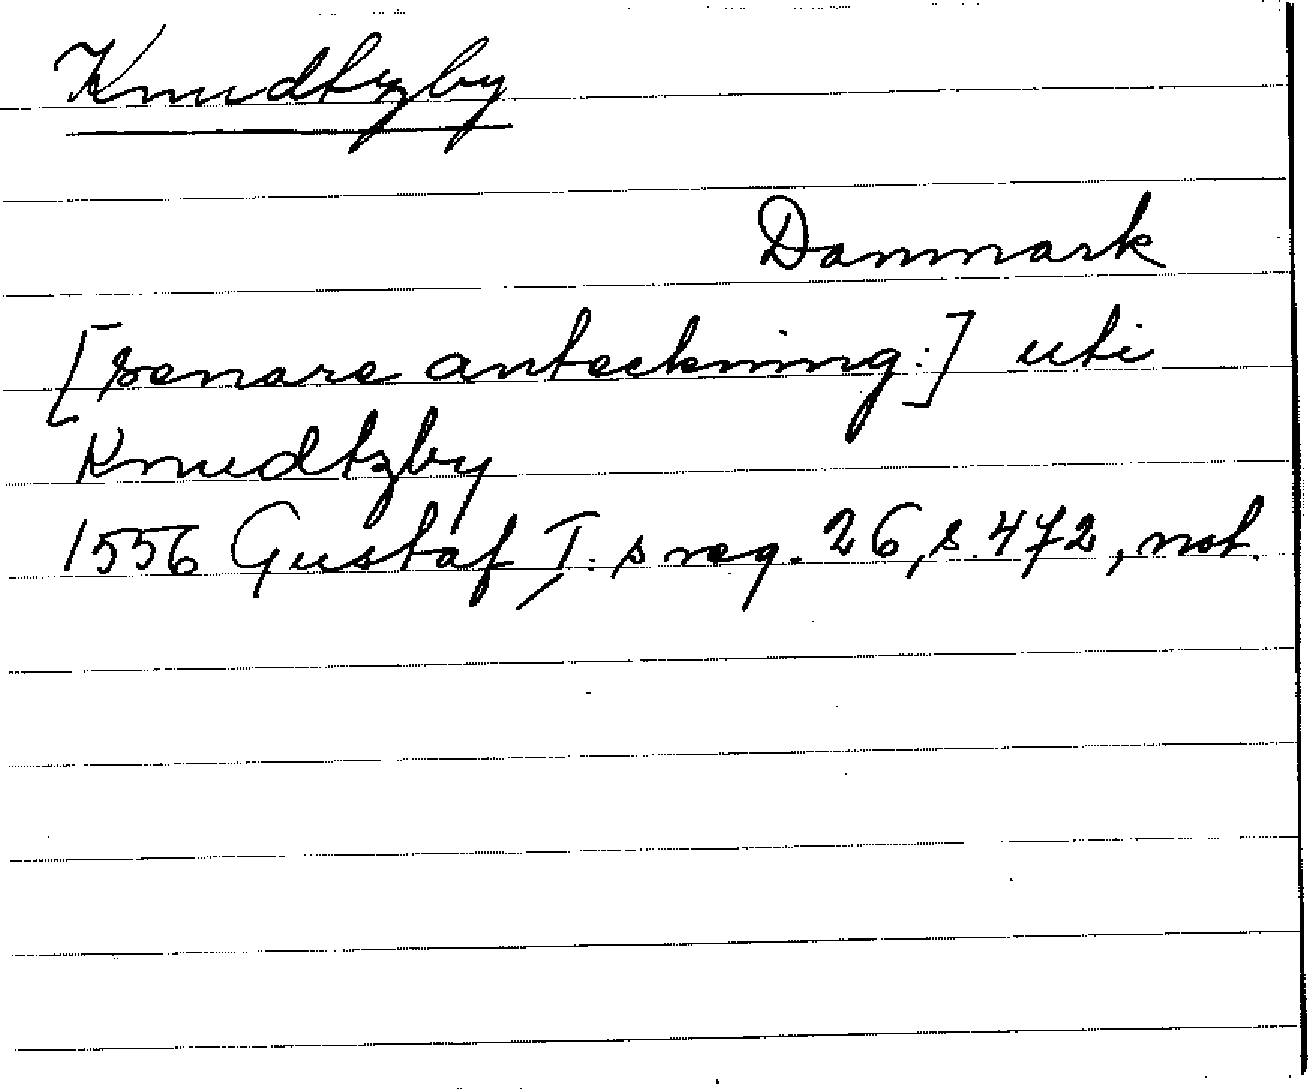 Knudtzby
Danmark
[senare anteckning:] uti
Knudtzby
1556 Gustaf I:s reg. 26, s. 472, not.